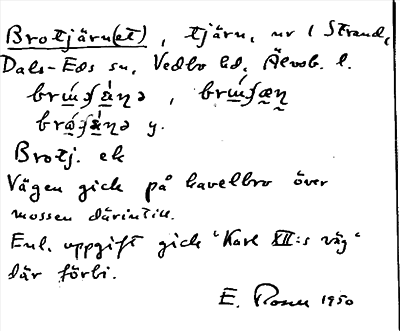 Brotjärn(et), tjärn, nr 1 Strand,
Dals-Eds sn, Vedbo hd, Älvsb. l.
y.
Brotj. ek
Vägen gick på kavelbro över
mossen därintill.
Enl. uppgift gick "Karl XII:s väg"
där förbi.
E. Rosen 1950